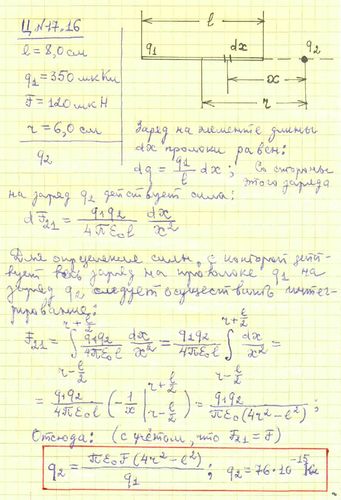 Ц №17.16
l = 8,0 см
q₁ = 350 мкКл
F = 120 мкН
r = 6,0 см
q₂
l
q₁ dx q₂
x
r
Заряд на элементе длины
dx проволоки равен:
dq = q₁/l dx; Со стороны
этого заряда
на заряд q₁ действует сила:
dF₂₁ = q₁q₂/4πε₀l dx/x²
Для определения силы, с которой дейст-
вует весь заряд на проволоке q₁ на
заряд q₂ следует осуществить интег-
рирование:
F₂₁ = ∫_{r-l/2}^{r+l/2} q₁q₂/4πε₀l dx/x² = q₁q₂/4πε₀l ∫_{r-l/2}^{r+l/2} dx/x² =
= q₁q₂/4πε₀l (-1/x |_{r-l/2}^{r+l/2}) = q₁q₂/πε₀(4r²-l²);
Отсюда: (с учётом, что F₂₁ = F)
q₂ = πε₀F(4r²-l²)/q₁; q₂ = 76·10⁻¹⁵ Кл